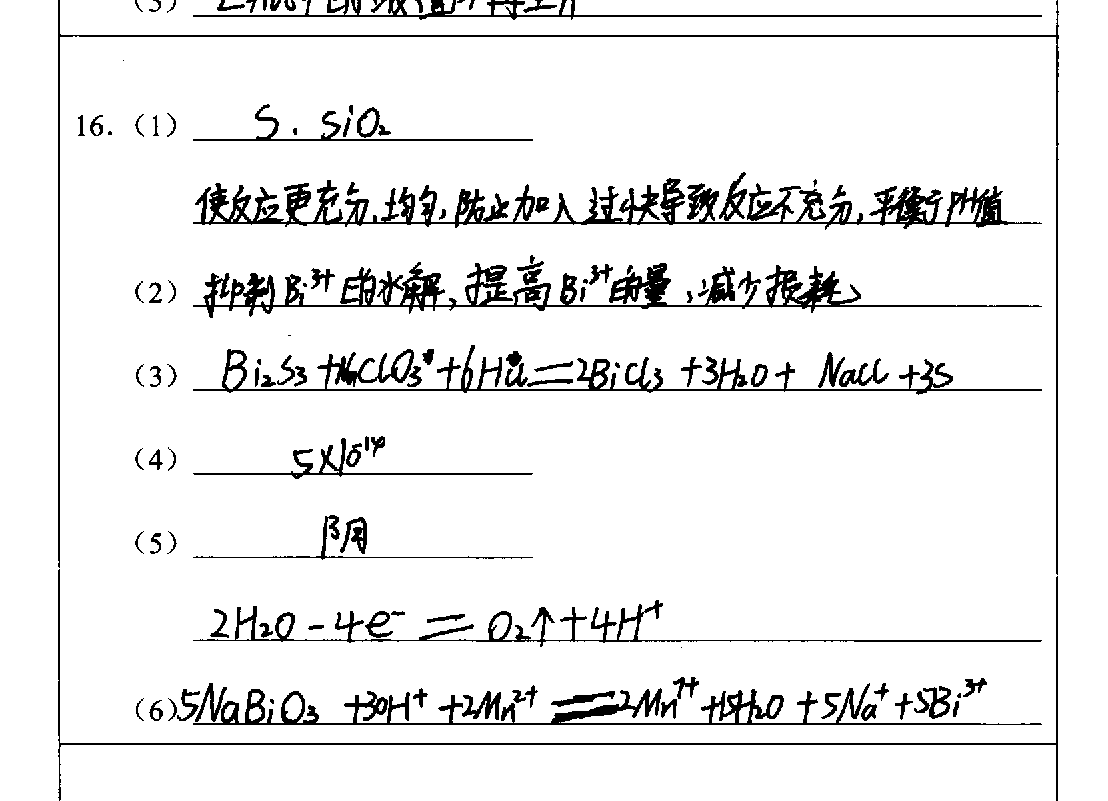 16.（1） S．SiO₂
使反应更充分,均匀,防止加入过快导致反应不充分,平衡pH值
（2） 抑制Bi³⁺的水解,提高Bi³⁺的量,减少损耗
（3） Bi₂S₃+NaClO₃+6HCl=2BiCl₃+3H₂O+NaCl+3S
（4） 5×10¹⁴
（5） 阴
2H₂O-4e⁻=O₂↑+4H⁺
（6） 5NaBiO₃+30H⁺+2Mn²⁺=2Mn⁷⁺+15H₂O+5Na⁺+5Bi³⁺